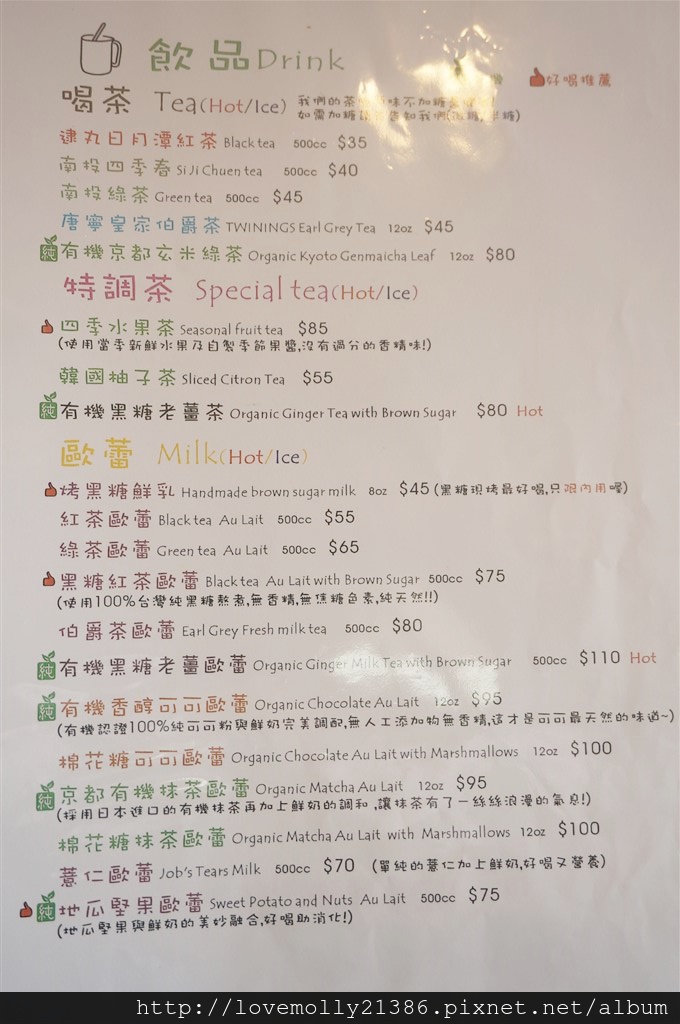 飲品 Drink
好喝推薦
喝茶 Tea(Hot/Ice) 我們的茶 味不加糖
如需加糖 告知我們 糖)
逮丸日月潭紅茶 Black tea 500cc $35
南投四季春 Si Ji Chuen tea 500cc $40
南投綠茶 Green tea 500cc $45
唐寧皇家伯爵茶 TWININGS Earl Grey Tea 12oz $45
純 有機京都玄米綠茶 Organic Kyoto Genmaicha Leaf 12oz $80
特調茶 Special tea(Hot/Ice)
四季水果茶 Seasonal fruit tea $85
(使用當季新鮮水果及自製季節果醬,沒有過分的香精味!)
韓國柚子茶 Sliced Citron Tea $55
純 有機黑糖老薑茶 Organic Ginger Tea with Brown Sugar $80 Hot
歐蕾 Milk(Hot/Ice)
烤黑糖鮮乳 Handmade brown sugar milk 8oz $45 (黑糖現烤最好喝,只限內用喔)
紅茶歐蕾 Black tea Au Lait 500cc $55
綠茶歐蕾 Green tea Au Lait 500cc $65
黑糖紅茶歐蕾 Black tea Au Lait with Brown Sugar 500cc $75
(使用100%台灣純黑糖熬煮,無香精,無焦糖色素,純天然!!)
伯爵茶歐蕾 Earl Grey Fresh milk tea 500cc $80
純 有機黑糖老薑歐蕾 Organic Ginger Milk Tea with Brown Sugar 500cc $110 Hot
純 有機香醇可可歐蕾 Organic Chocolate Au Lait 12oz $95
(有機認證100%純可可粉與鮮奶完美調配,無人工添加物無香精,這才是可可最天然的味道~)
棉花糖可可歐蕾 Organic Chocolate Au Lait with Marshmallows 12oz $100
純 京都有機抹茶歐蕾 Organic Matcha Au Lait 12oz $95
(採用日本進口的有機抹茶再加上鮮奶的調和,讓抹茶有了一絲絲浪漫的氣息!)
棉花糖抹茶歐蕾 Organic Matcha Au Lait with Marshmallows 12oz $100
薏仁歐蕾 Job's Tears Milk 500cc $70 (單純的薏仁加上鮮奶,好喝又營養)
純 地瓜堅果歐蕾 Sweet Potato and Nuts Au Lait 500cc $75
(地瓜堅果與鮮奶的美妙融合,好喝助消化!)
http://lovemolly21386.pixnet.net/album